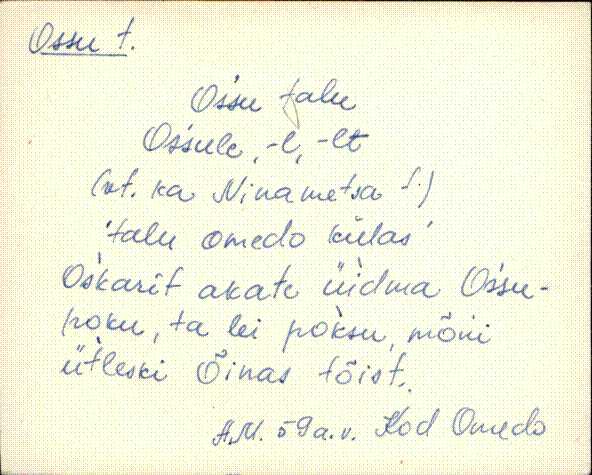 Ossu t.
Os'su talu
Os'sule, -l, -lt
(vt. ka Ninametsa t.)
'talu omedo külas'
Os'karit akate üidma Os'su-
poku, ta lei poksu, mõni
üt'leski Õinas tõist.
A.M. 59 a.v. Kod Omedo